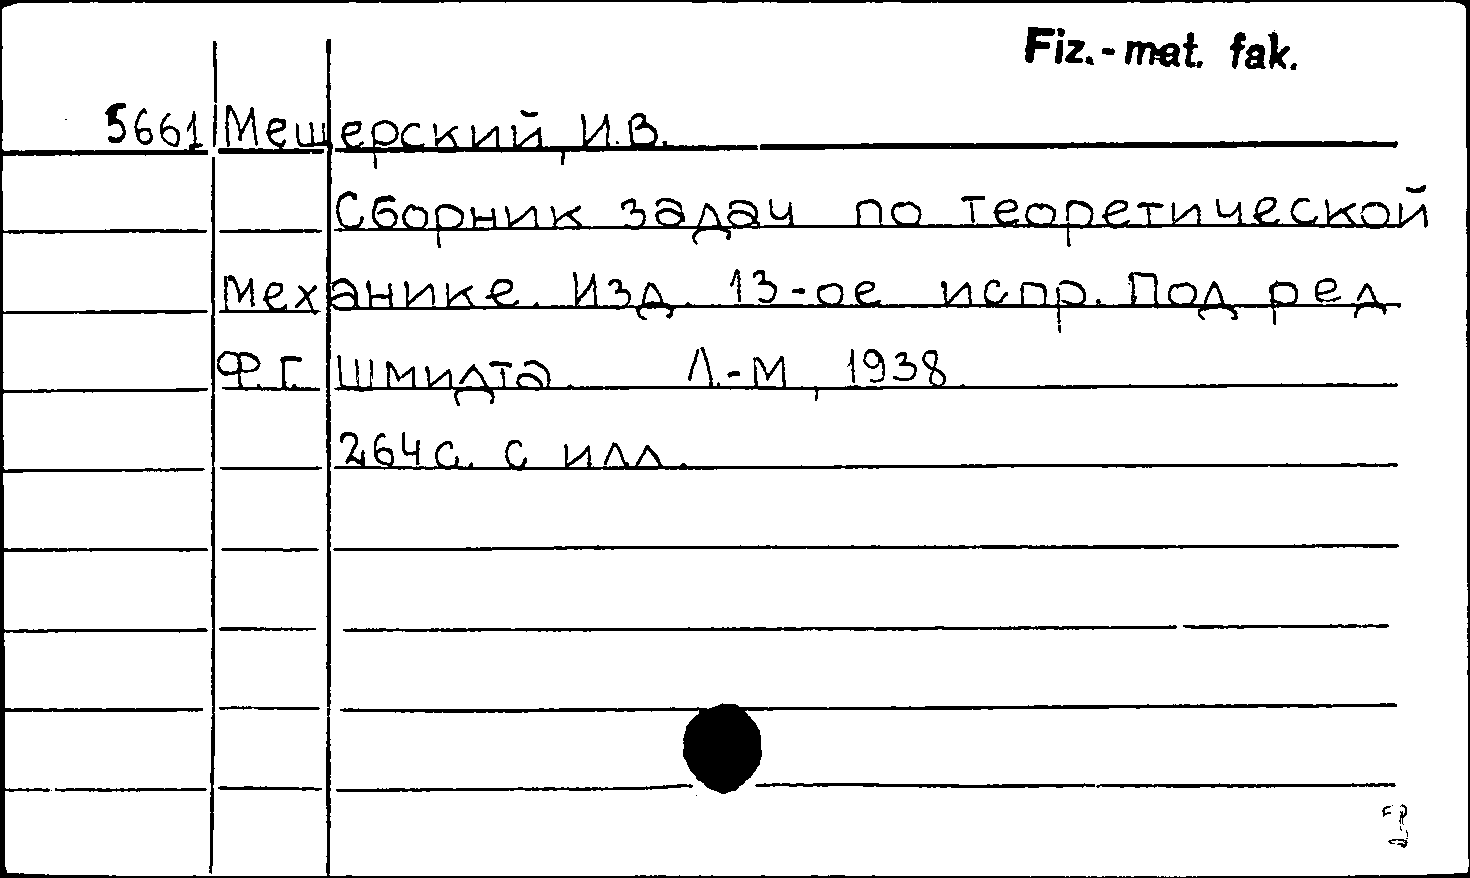 Fiz.-mat. fak.
5661 Мещерский, И.В.
Сборник задач по теоретической
механике. Изд. 13-ое испр. Под ред
Ф.Г. Шмидта. Л.-М, 1938.
264 с. с илл.